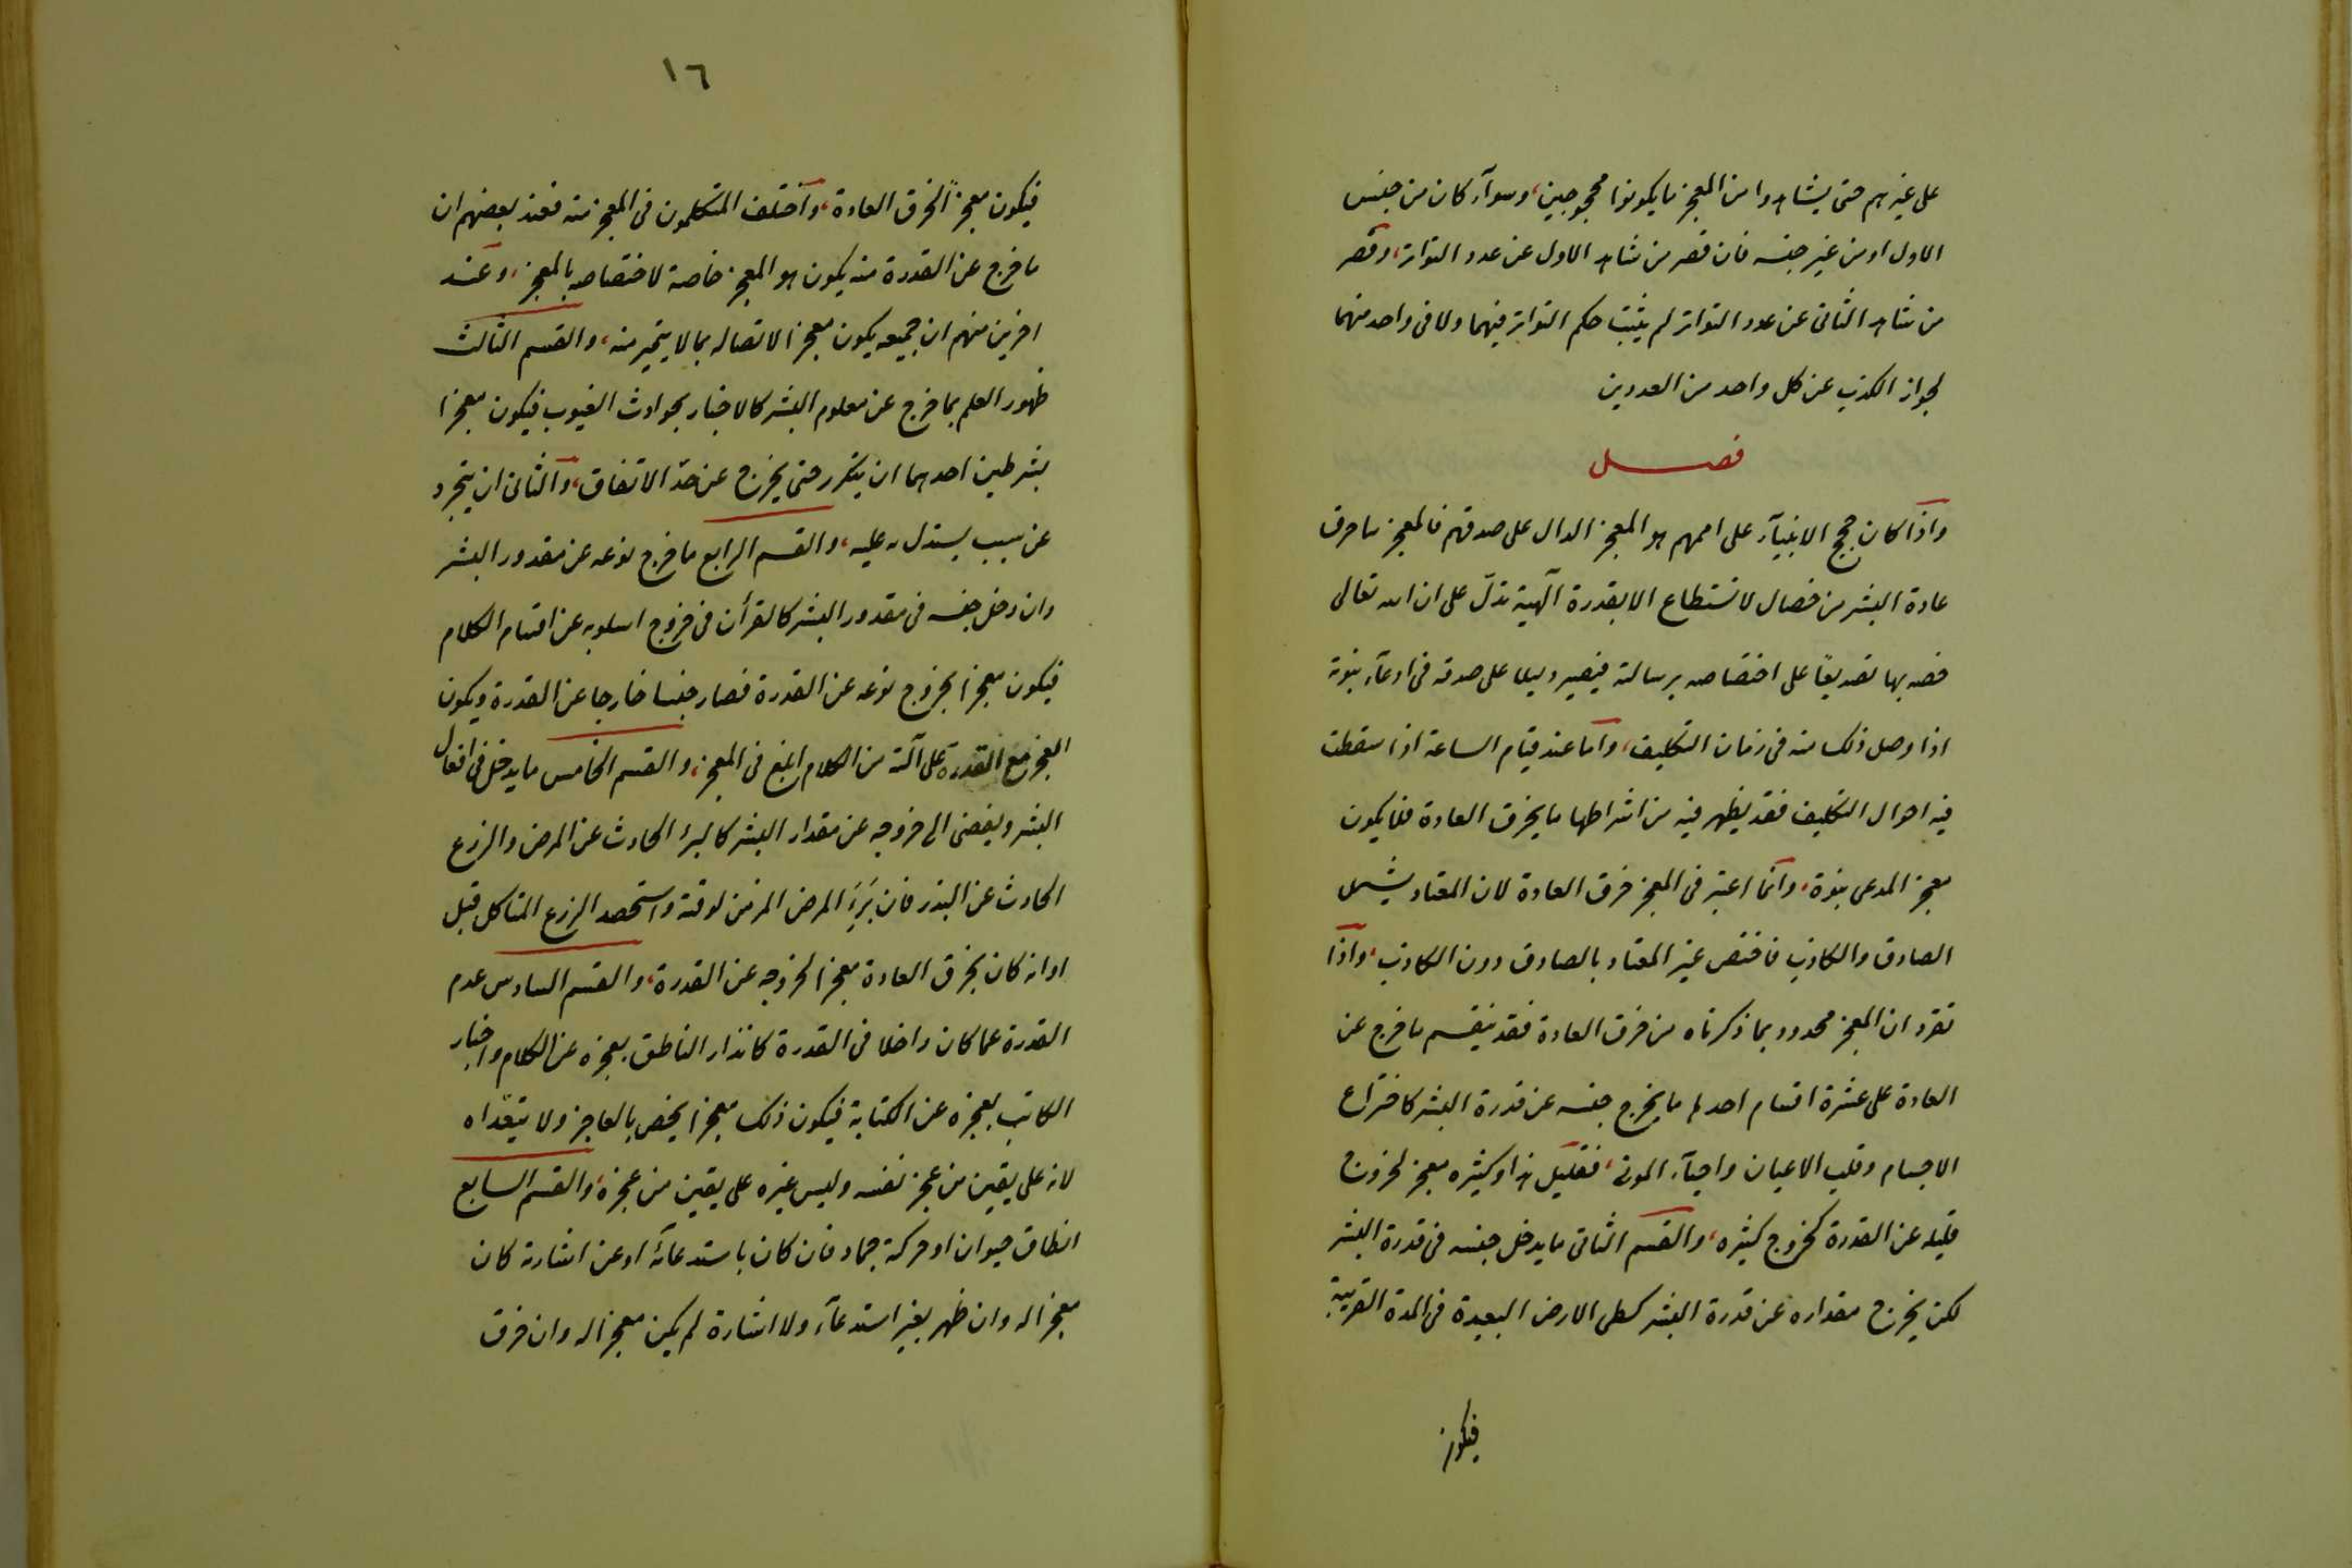 على غيرهم حتى يشاهدوا من المعجز ما يكونوا محجوجين، وسوآء كان من جنس
الاول او من غير جنسه فان قصر من شاهد الاول عن عدد التواتر، وقصر
من شاهد الثانى عن عدد التواتر لم يثبت حكم التواتر فيهما ولا فى واحد منهما
لجواز الكذب عن كل واحد من العددين
فصل
واذا كان حجج الانبيآء على اممهم هو المعجز الدال على صدقهم فالمعجز ما خرق
عادة البشر من خصال لا تستطاع الا بقدرة آلهية تدلّ على ان الله تعالى
خصه بها تصديقًا على اختصاصه برسالته فيصير دليلا على صدقه فى ادعآء نبوته
اذا وصل ذلك منه فى زمان التكليف، واما عند قيام الساعة اذا سقطت
فيه احوال التكليف فقد يظهر فيه من اشراطها ما يخرق العادة فلا يكون
معجز المدعى نبوة، وانما اعتبر فى المعجز خرق العادة لان المعتاد يشمل
الصادق والكاذب فاختص غير المعتاد بالصادق دون الكاذب، واذا
تقرر ان المعجز محدود بما ذكرناه من خرق العادة فقد ينقسم ما خرج عن
العادة على عشرة اقسام احدها ما يخرج جنسه عن قدرة البشر كاختراع
الاجسام وقلب الاعيان واحيآء الموتى، فقليل هذا وكثيره معجز لخروج
قليله عن القدرة كخروج كثيره، والقسم الثانى ما يدخل جنسه فى قدرة البشر
لكن يخرج مقداره عن قدرة البشر كطى الارض البعيدة فى المدة القريبة
فيكون
١٦
فيكون معجزًا لخرق العادة، واختلف المتكلمون فى المعجز منه فعند بعضهم ان
ما خرج عن القدرة منه يكون هو المعجز خاصة لاختصاصه بالمعجز، وعند
اخرين منهم ان جميعه يكون معجزا لاتصاله بما لا يتميز منه، والقسم الثالث
ظهور العلم بما خرج عن معلوم البشر كالاخبار بحوادث الغيوب فيكون معجزا
بشرطين احدهما ان يتكرر حتى يخرج عن حدّ الاتفاق، والثانى ان يتجرد
عن سبب يستدل به عليه، والقسم الرابع ما خرج نوعه عن مقدور البشر
وان دخل جنسه فى مقدور البشر كالقرأن فى خروج اسلوبه عن اقسام الكلام
فيكون معجزا بخروج نوعه عن القدرة فصار جنسا خارجا عن القدرة ويكون
العجز مع القدرة على آلته من الكلام ابلغ فى المعجز، والقسم الخامس ما يدخل فى افعال
البشر ويفضى الى خروجه عن مقدار البشر كالبرء الحادث عن المرض والزرع
الحادث عن البذر فان بَرِئَ المرض المزمن لوقته واستحصد الزرع المتاكل قبل
اوانه كان بخرق العادة معجزا لخروجه عن القدرة، والقسم السادس عدم
القدرة عما كان داخلا فى القدرة كانذار الناطق بعجزه عن الكلام واخبار
الكاتب بعجزه عن الكتابة فيكون ذلك معجزا يخص بالعاجز ولا يتعداه
لانه على يقين من عجز نفسه وليس غيره على يقين من عجزه، والقسم السابع
انطاق حيوان او حركة جماد فان كان باستدعائه او عن اشارته كان
معجزا له وان ظهر بغير استدعآء ولا اشارة لم يكن معجزا له وان خرق